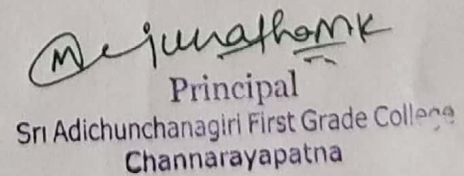 Manjunatha MK
Principal
Sri Adichunchanagiri First Grade College
Channarayapatna